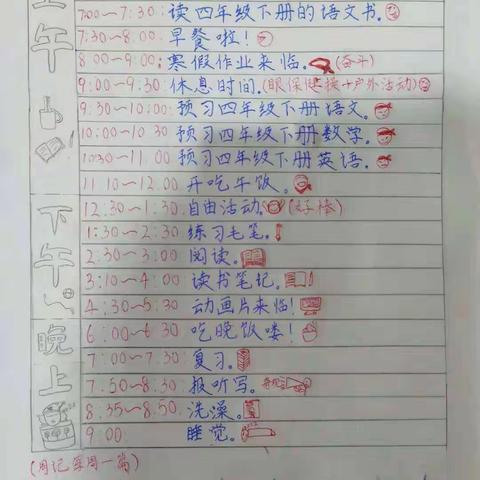 上午
7:00~7:30:读四年级下册的语文书。
7:30~8:00:早餐啦!
8:00~9:00:寒假作业来临。(奋斗)
9:00~9:30:休息时间。(眼保健操+户外活动)
9:30~10:00:预习四年级下册语文。
10:00~10:30 预习四年级下册数学。
10:30~11:00 预习四年级下册英语。
11:10~12:00 开吃午饭。
下午
12:30~1:30:自由活动。(好棒)
1:30~2:30:练习毛笔。
2:30~3:00 阅读。
3:10~4:00 读书笔记。
4:30~5:30 动画片来临!
晚上
6:00~6:30 吃晚饭喽!
7:00~7:30:复习。
7:50~8:30:报听写。
8:35~8:50.洗澡。
9:00 睡觉。
(周记每周一篇)